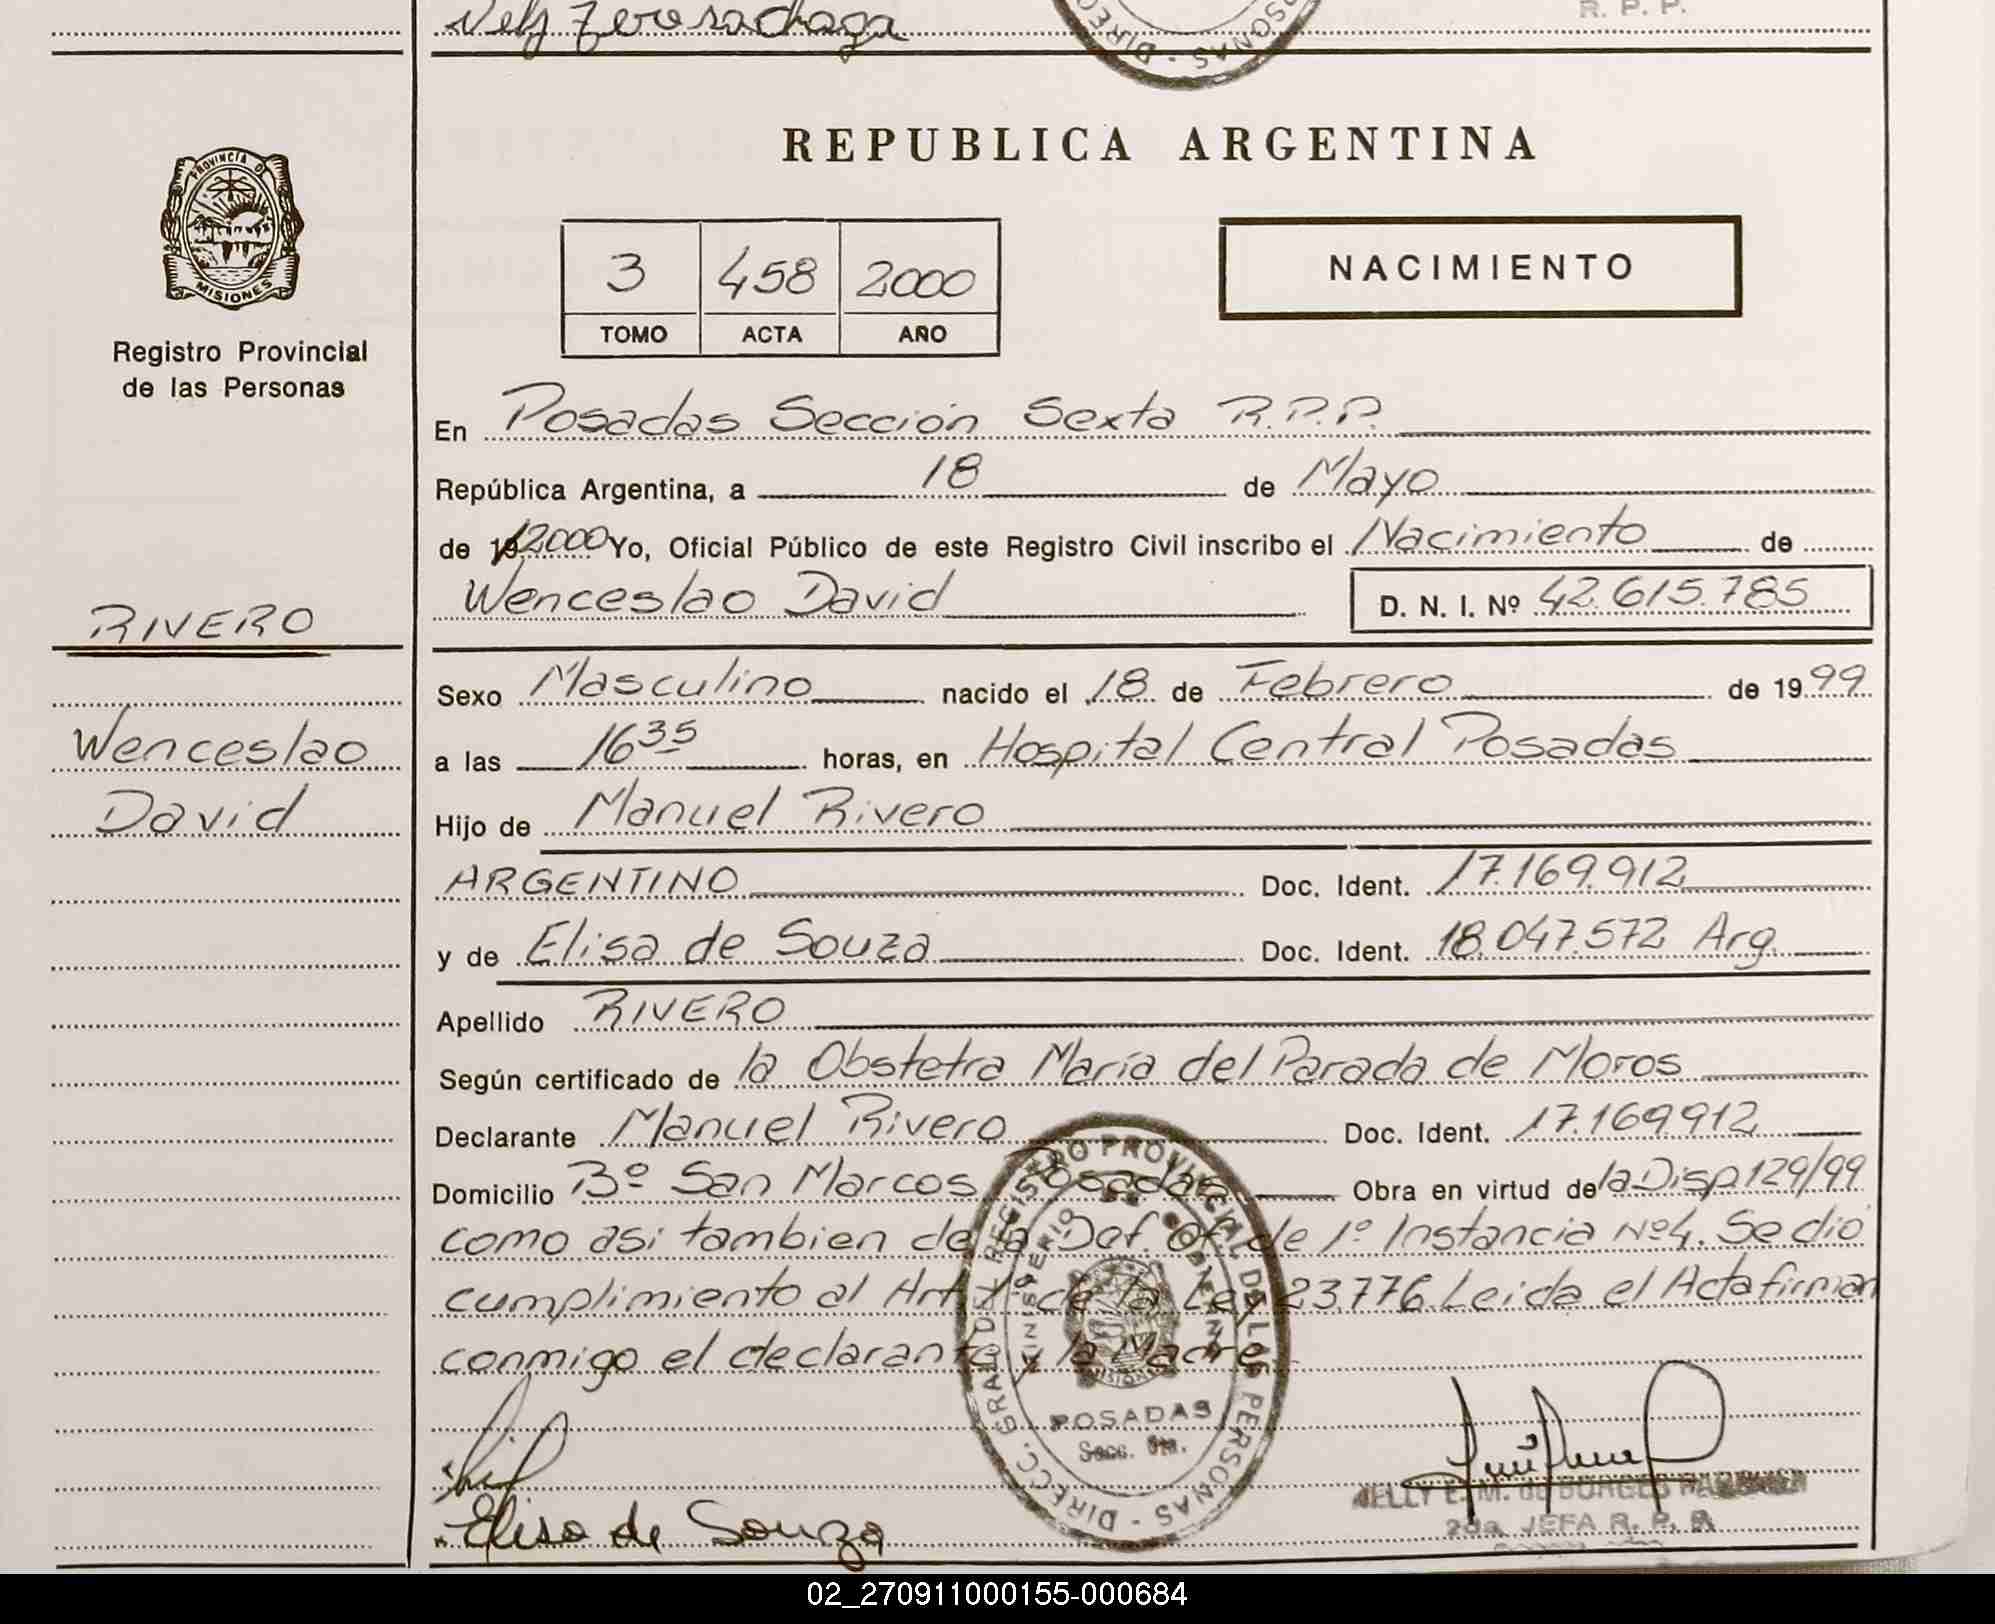 R. P. P.
PROVINCIA D
MISIONES
Registro Provincial
de las Personas
RIVERO
Wenceslao
David
REPUBLICA ARGENTINA
3 458 2000
TOMO ACTA AÑO
NACIMIENTO
En Posadas Sección Sexta R.P.P.
República Argentina, a 18 de Mayo
de 19 2000 Yo, Oficial Público de este Registro Civil inscribo el Nacimiento de
Wenceslao David D. N. I. Nº 42.615.785
Sexo Masculino nacido el 18 de Febrero de 1999
a las 16 35 horas, en Hospital Central Posadas
Hijo de Manuel Rivero
ARGENTINO Doc. Ident. 17.169.912
y de Elisa de Souza Doc. Ident. 18.047.572 Arg.
Apellido RIVERO
Según certificado de la Obstetra María del Parada de Moros
Declarante Manuel Rivero Doc. Ident. 17.169.912
Domicilio Bº San Marcos Posadas Obra en virtud de la Disp 129/99
como asi tambien de la Def. Of. de 1º Instancia Nº4. Se dió
cumplimiento al Art 1º de la Ley 23.776. Leida el Acta firman
conmigo el declarante y la Madre
DIRECC. GRAL. DEL REGISTRO PROVINCIAL DE LAS PERSONAS
MINISTERIO DE GOBIERNO
MISIONES
POSADAS
Secc. 6ta.
Elisa de Souza
NELLY E. M. de BORGES
2da. JEFA R. P. P.
02_270911000155-000684